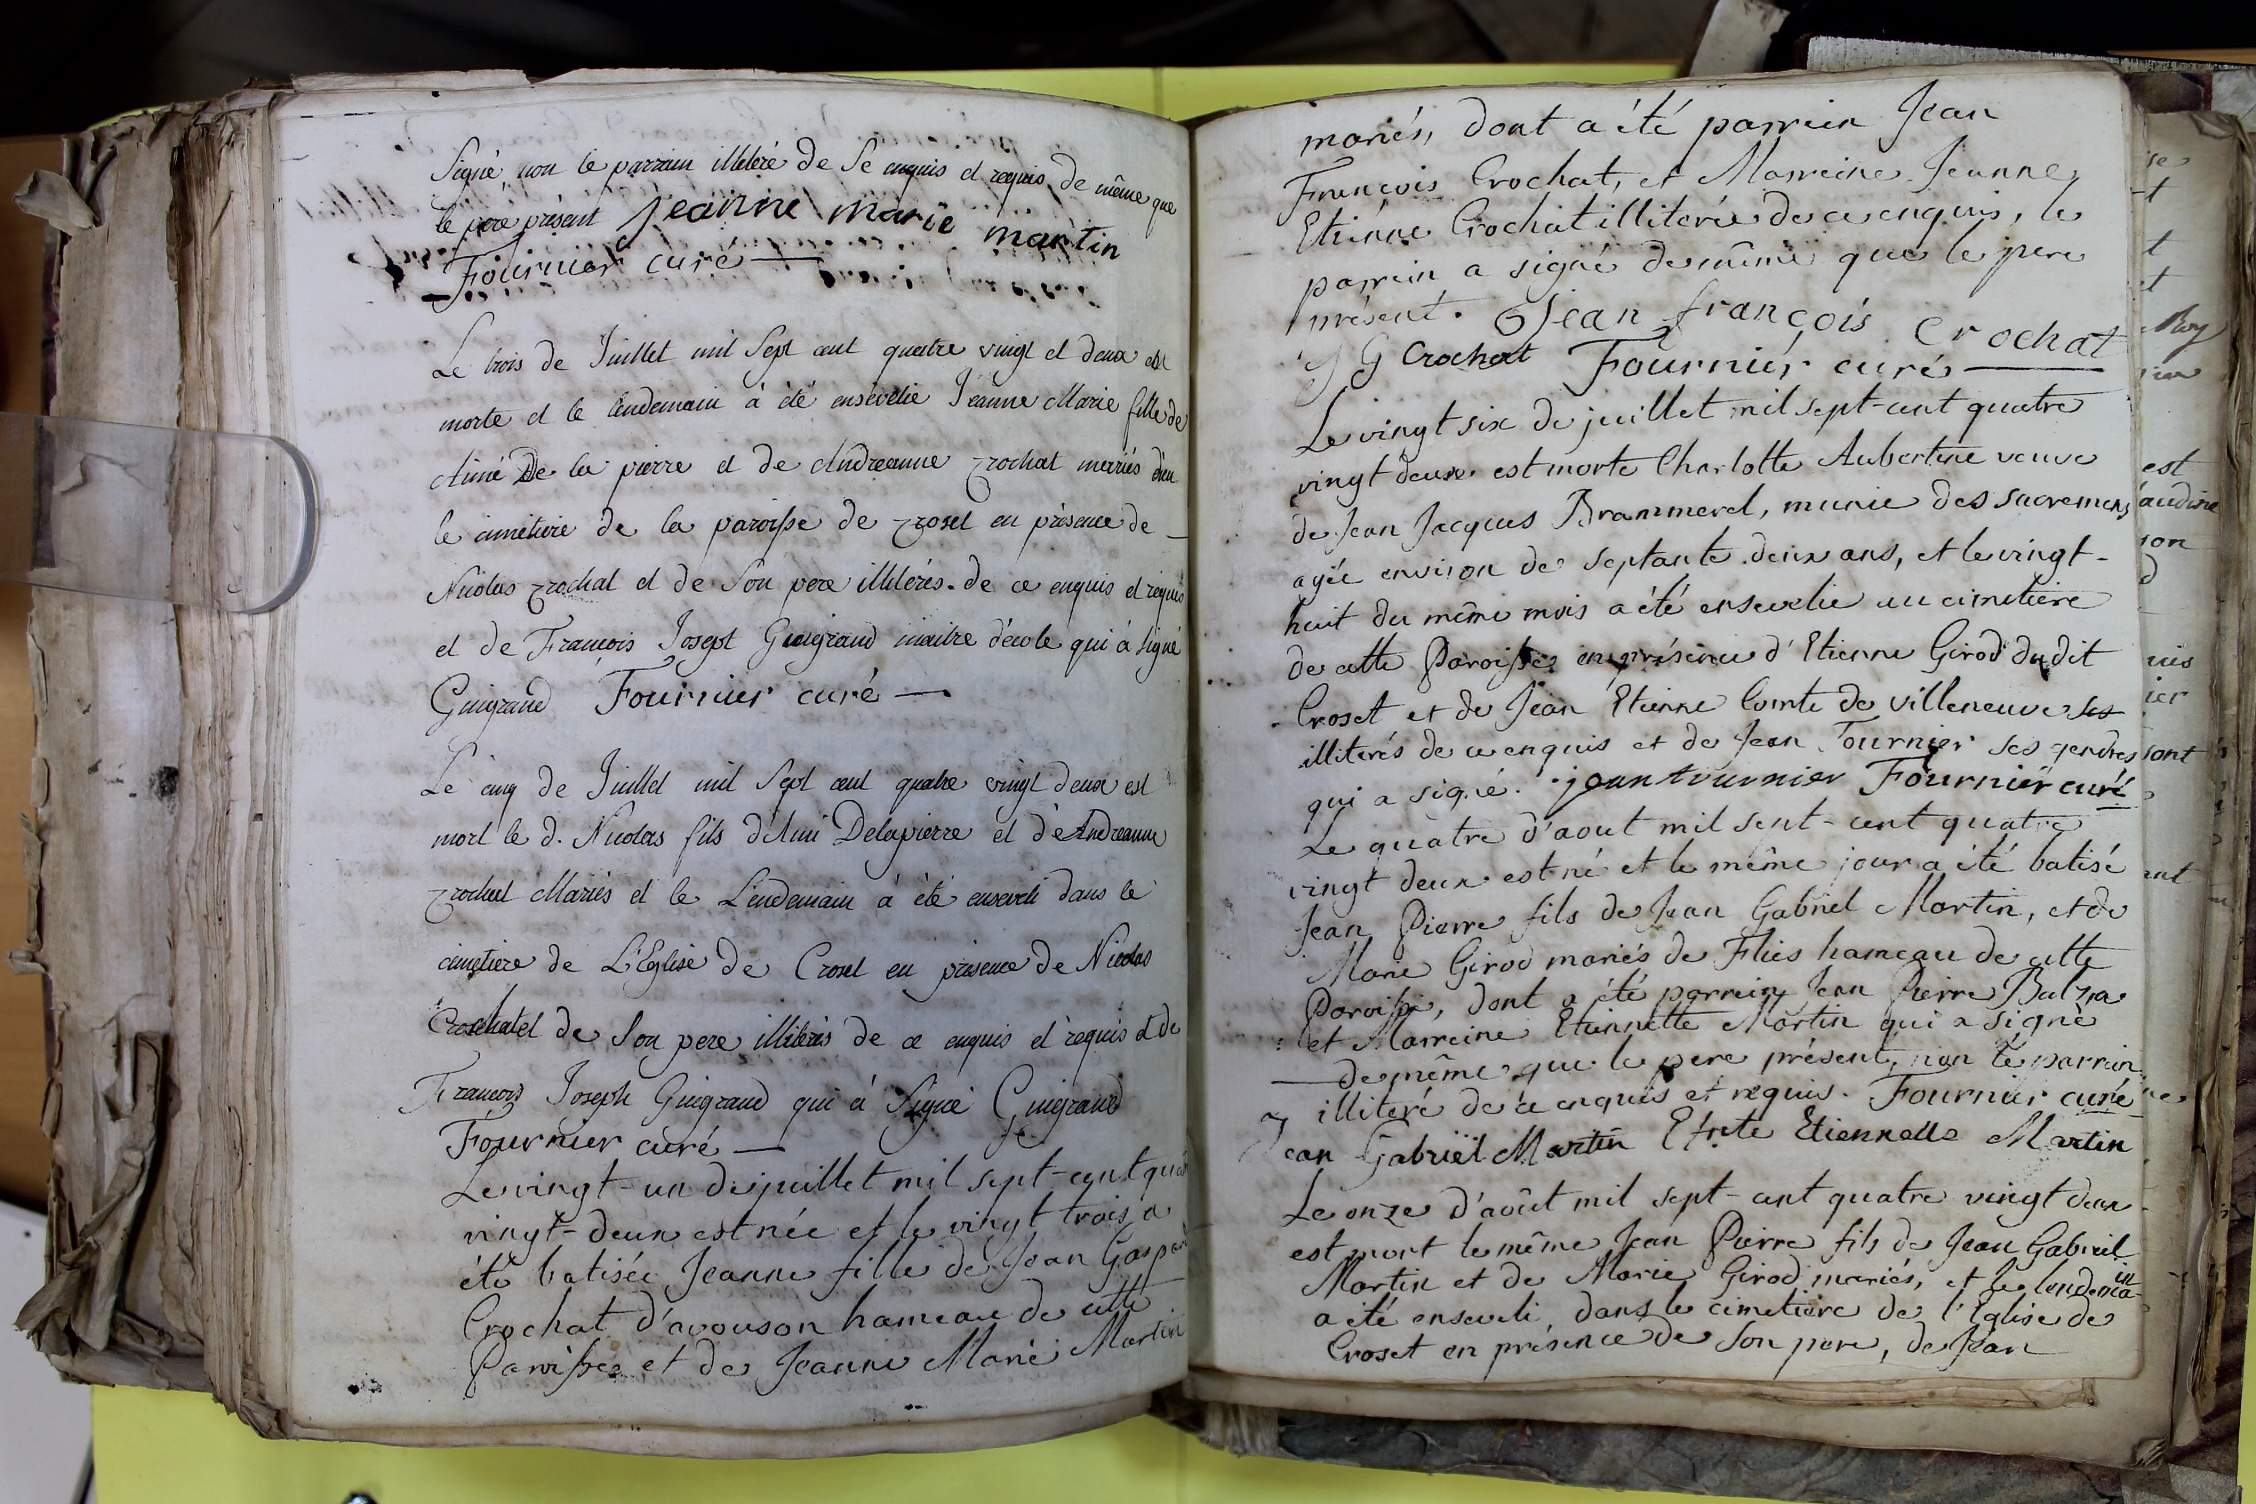 Signé, non le parrain illitéré de Se enquis et requis, de même que
le pere présent Jeanne marie martin
Fournier curé
Le trois de Juillet mil Sept cent quatre vingt et deux est
morte et le lendemain à été ensevelie Jeanne Marie fille de
Aimé De la pierre et de Andreanne crochat mariés dans
le cimétiere de la paroisse de crosel en présence de
Nicolas crochat et de Son pere illitérés de ce enquis et requis
et de François Joseph Guigrand maitre d'école qui à signé
Guigrand Fournier curé
Le cinq de Juillet mil Sept cent quatre vingt deux est
mort le d. Nicolas fils d'Aimé Delapierre et d'Andreanne
crochat Mariés et le Lendemain à été enseveli dans le
cimetiere de L'Eglise de Crosel en présence de Nicolas
Crochat et de Son pere illitérés de ce enquis et requis et de
François Joseph Guigrand qui à Signé Guigrand
Fournier curé
Le vingt-un de juillet mil sept-cent quatre
vingt-deux est née et le vingt trois a
été batisée Jeanne fille de Jean Gaspard
Crochat d'avouson hameau de cette
Paroisse et de Jeanne Marie Martin
mariés, dont a été parrein Jean
François Crochat, et Marreine Jeanne
Etienne Crochat illiterée de ce enquis, le
parrein a signé de même que le pere
présent. Jean françois Crochat
J G Crochat Fournier curé
Le vingt six de juillet mil sept-cent quatre
vingt deux est morte Charlotte Aubertine veuve
de Jean Jacques Brammerel, munie des sacremens
agée environ de septante deux ans, et le vingt-
huit du même mois a été ensevelie au cimetiere
de cette Paroisse en présence d'Etienne Girod du dit
Croset et de Jean Etienne Comte de villeneuve ses
illiterés de ce enquis et de Jean Fournier ses gendres
qui a signé. jean tournier Fournier curé
Le quatre d'aout mil sept-cent quatre
vingt deux est né et le même jour a été batisé
Jean Pierre fils de Jean Gabriel Martin, et de
Marie Girod mariés de Flies hameau de cette
Paroisse, dont a été parrein Jean Pierre Balzia
et Marreine Etiennette Martin qui a signé
de même que le pere présent, non le parrein
illiteré de ce enquis et requis. Fournier curé
Jean Gabriël Martin Etnte Etiennette Martin
Le onze d'août mil sept-cent quatre vingt deux
est mort le même Jean Pierre fils de Jean Gabriel
Martin et de Marie Girod mariés, et le lendemain
a été enseveli dans le cimetiere de l'Eglise de
Croset en présence de Son pere, de Jean